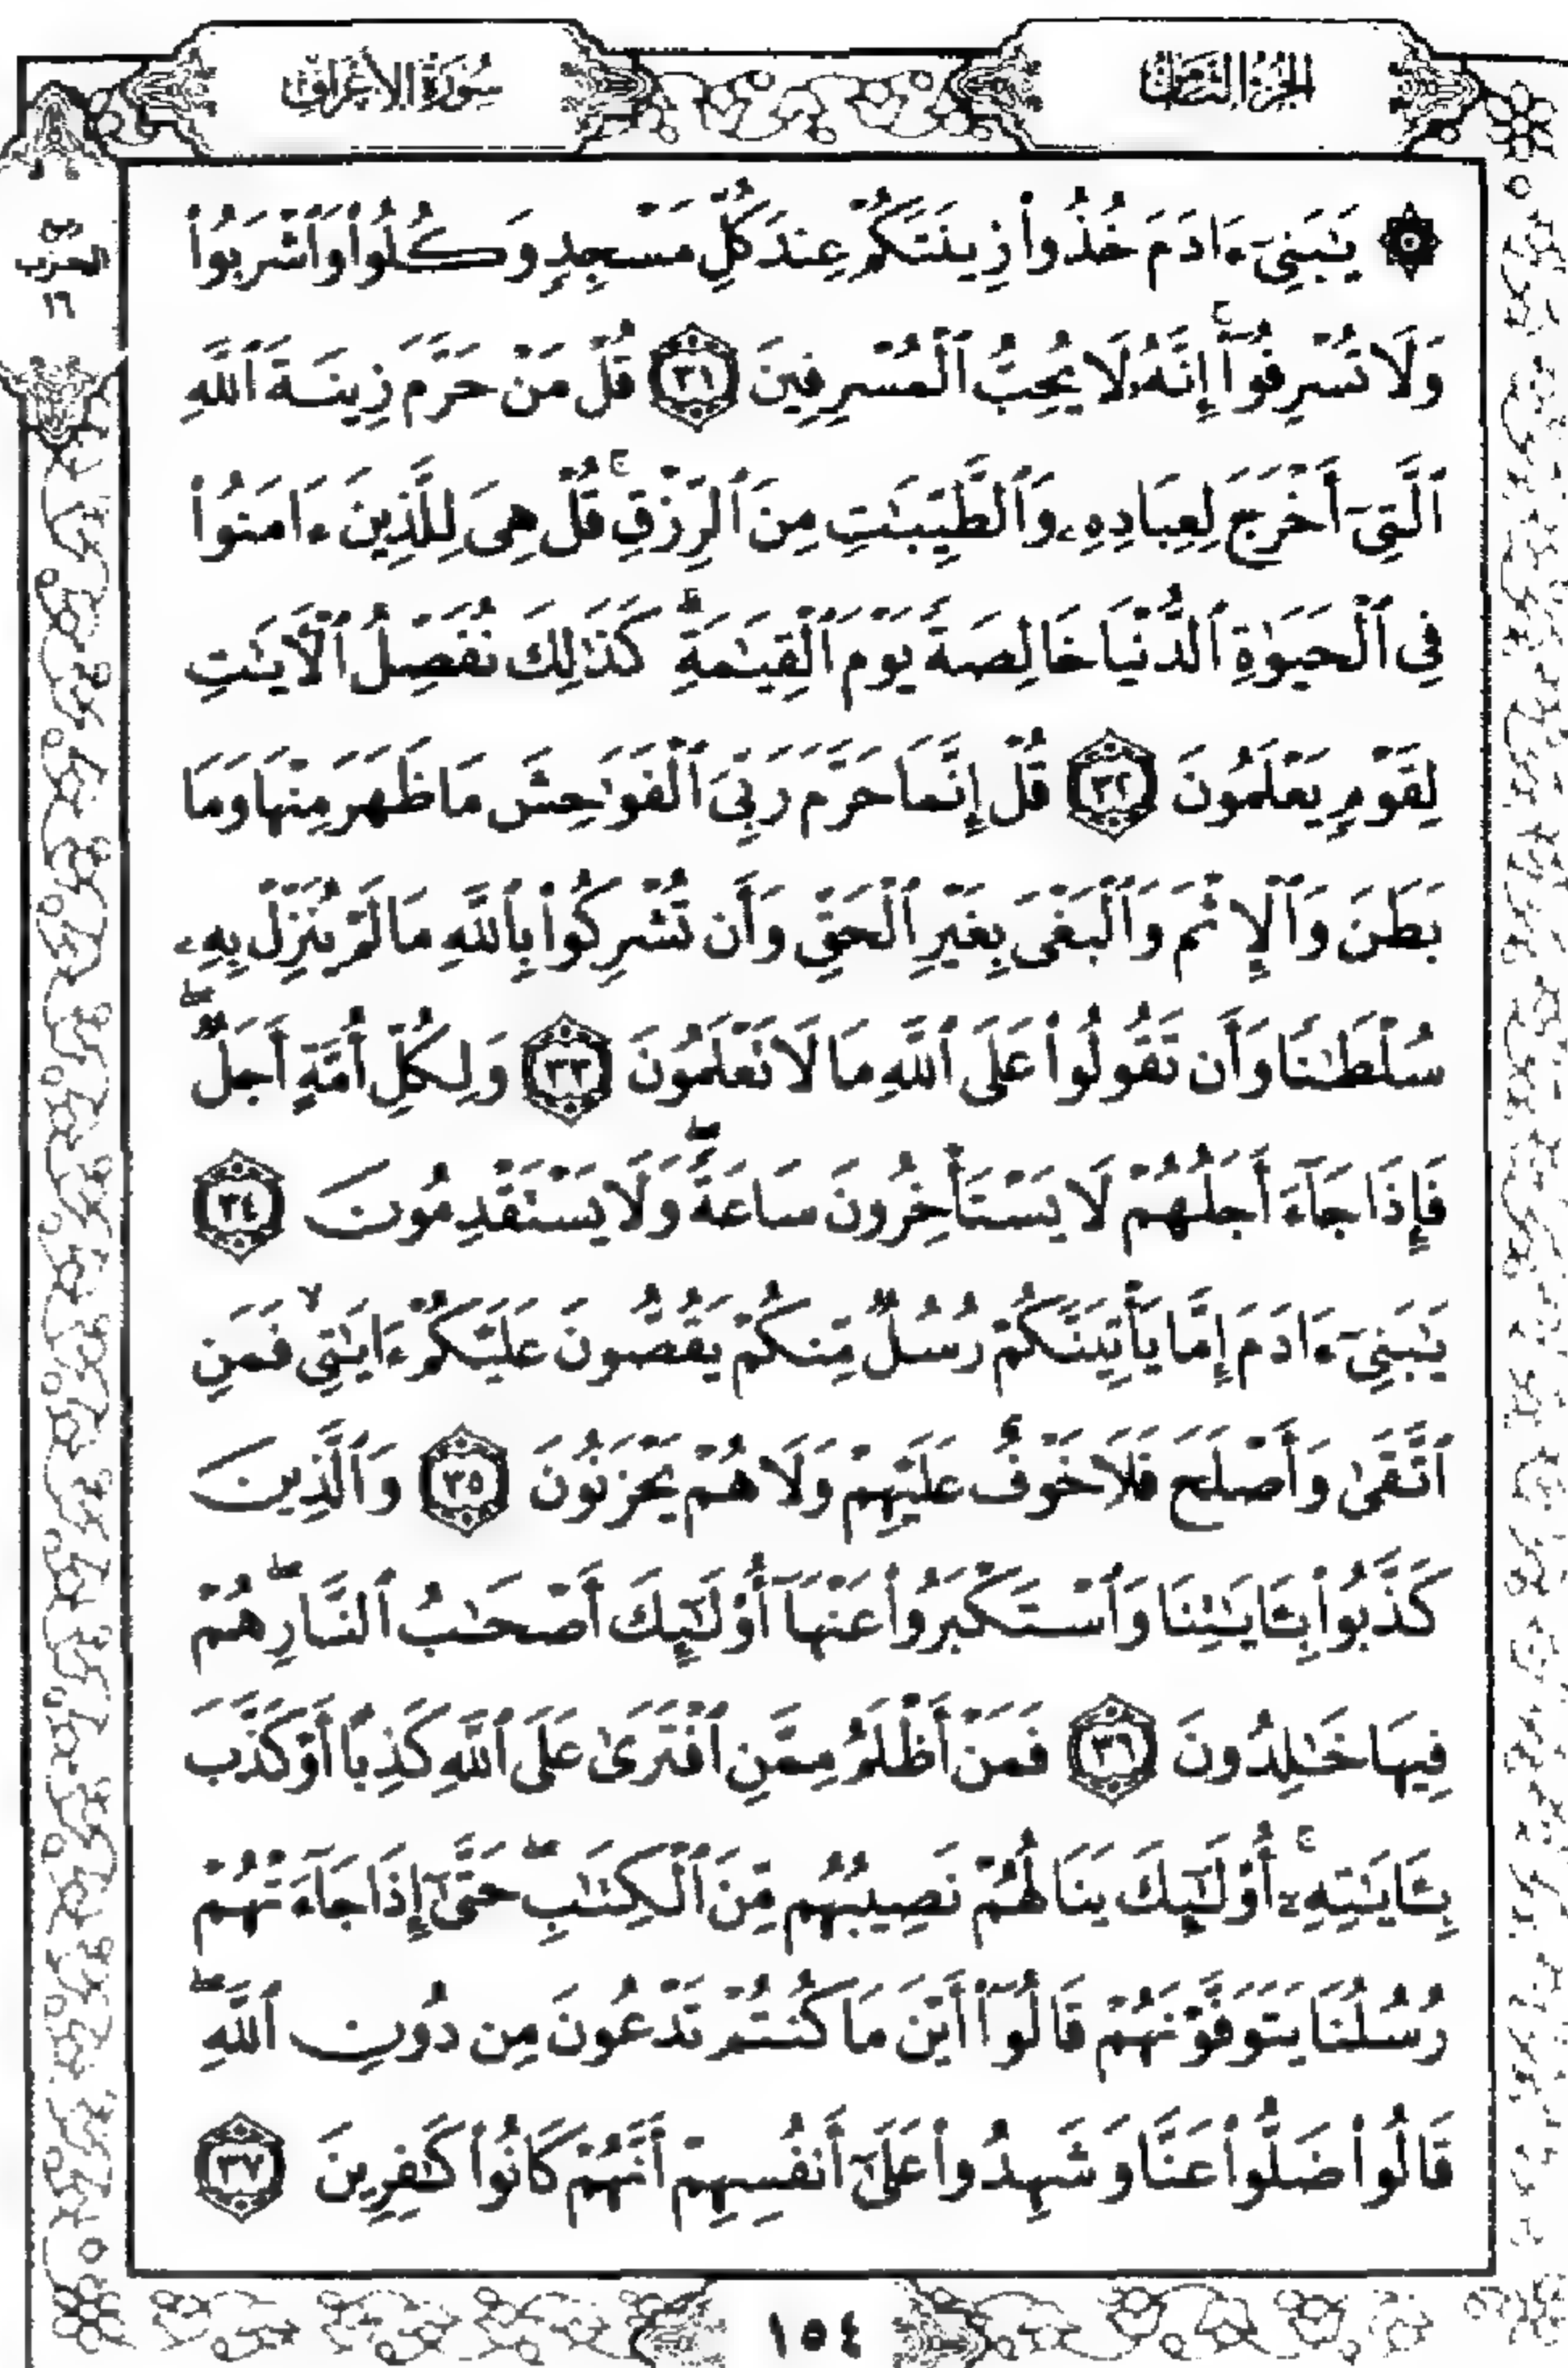 الجزء الثامن
سورة الأعراف
نصف
الحزب
١٦
۞ يَٰبَنِىٓ ءَادَمَ خُذُوا۟ زِينَتَكُمْ عِندَ كُلِّ مَسْجِدٍ وَكُلُوا۟ وَٱشْرَبُوا۟
وَلَا تُسْرِفُوٓا۟ ۚ إِنَّهُۥ لَا يُحِبُّ ٱلْمُسْرِفِينَ ٣١ قُلْ مَنْ حَرَّمَ زِينَةَ ٱللَّهِ
ٱلَّتِىٓ أَخْرَجَ لِعِبَادِهِۦ وَٱلطَّيِّبَٰتِ مِنَ ٱلرِّزْقِ ۚ قُلْ هِىَ لِلَّذِينَ ءَامَنُوا۟
فِى ٱلْحَيَوٰةِ ٱلدُّنْيَا خَالِصَةً يَوْمَ ٱلْقِيَٰمَةِ ۗ كَذَٰلِكَ نُفَصِّلُ ٱلْءَايَٰتِ
لِقَوْمٍ يَعْلَمُونَ ٣٢ قُلْ إِنَّمَا حَرَّمَ رَبِّىَ ٱلْفَوَٰحِشَ مَا ظَهَرَ مِنْهَا وَمَا
بَطَنَ وَٱلْإِثْمَ وَٱلْبَغْىَ بِغَيْرِ ٱلْحَقِّ وَأَن تُشْرِكُوا۟ بِٱللَّهِ مَا لَمْ يُنَزِّلْ بِهِۦ
سُلْطَٰنًا وَأَن تَقُولُوا۟ عَلَى ٱللَّهِ مَا لَا تَعْلَمُونَ ٣٣ وَلِكُلِّ أُمَّةٍ أَجَلٌ ۖ
فَإِذَا جَآءَ أَجَلُهُمْ لَا يَسْتَأْخِرُونَ سَاعَةً ۖ وَلَا يَسْتَقْدِمُونَ ٣٤
يَٰبَنِىٓ ءَادَمَ إِمَّا يَأْتِيَنَّكُمْ رُسُلٌ مِّنكُمْ يَقُصُّونَ عَلَيْكُمْ ءَايَٰتِى ۙ فَمَنِ
ٱتَّقَىٰ وَأَصْلَحَ فَلَا خَوْفٌ عَلَيْهِمْ وَلَا هُمْ يَحْزَنُونَ ٣٥ وَٱلَّذِينَ
كَذَّبُوا۟ بِـَٔايَٰتِنَا وَٱسْتَكْبَرُوا۟ عَنْهَآ أُو۟لَٰٓئِكَ أَصْحَٰبُ ٱلنَّارِ ۖ هُمْ
فِيهَا خَٰلِدُونَ ٣٦ فَمَنْ أَظْلَمُ مِمَّنِ ٱفْتَرَىٰ عَلَى ٱللَّهِ كَذِبًا أَوْ كَذَّبَ
بِـَٔايَٰتِهِۦٓ ۚ أُو۟لَٰٓئِكَ يَنَالُهُمْ نَصِيبُهُم مِّنَ ٱلْكِتَٰبِ ۖ حَتَّىٰٓ إِذَا جَآءَتْهُمْ
رُسُلُنَا يَتَوَفَّوْنَهُمْ قَالُوٓا۟ أَيْنَ مَا كُنتُمْ تَدْعُونَ مِن دُونِ ٱللَّهِ ۖ
قَالُوا۟ ضَلُّوا۟ عَنَّا وَشَهِدُوا۟ عَلَىٰٓ أَنفُسِهِمْ أَنَّهُمْ كَانُوا۟ كَٰفِرِينَ ٣٧
١٥٤